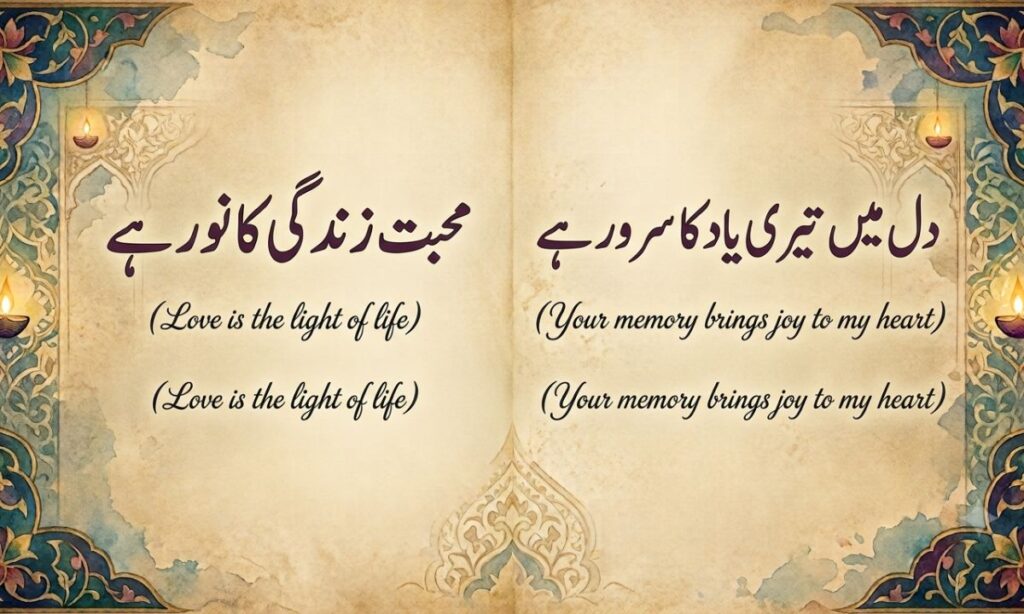 دل میں تیری یاد کا سرور ہے
(Your memory brings joy to my heart)
(Your memory brings joy to my heart)
محبت زندگی کا نور ہے
(Love is the light of life)
(Love is the light of life)